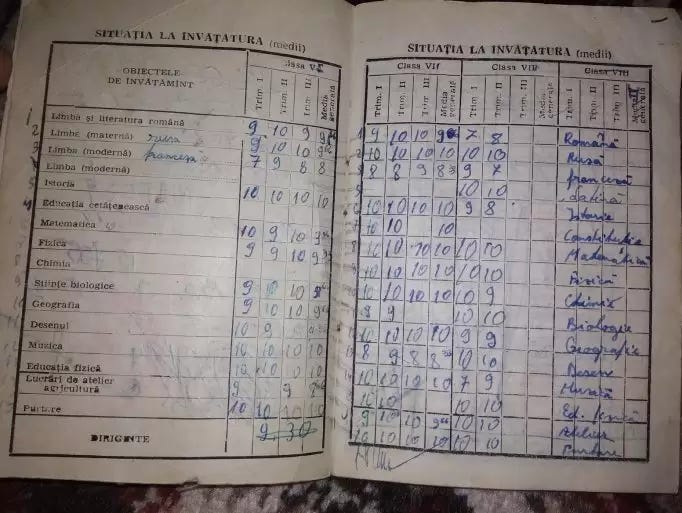 SITUAȚIA LA ÎNVĂȚĂTURĂ (medii)
OBIECTELE DE ÎNVĂȚĂMÎNT
Trim. I Trim. II Trim. III Media generală
Limba și literatura română 9 10 9
Limba (maternă) rusa 9 10 10
Limba (modernă) franceza 7 9 8 8
Limba (modernă)
Istoria 10 10 10 10
Educația cetățenească
Matematica 10 9 10
Fizica 9 9 10
Chimia
Științe biologice 9 10 10
Geografia 9 10 10
Desenul 10 9
Muzica 10 10 10 10
Educația fizică 10 10 10 10
Lucrări de atelier agricultură 9 9
Purtare 10 10 10 10
DIRIGINTE 9 30
SITUAȚIA LA ÎNVĂȚĂTURĂ (medii)
Clasa VII Clasa VIII Clasa VIII
Trim. I Trim. II Trim. III Media generală Trim. I Trim. II Trim. III Media generală Trim. I Trim. II Trim. III Media generală
9 10 10 7 8 Română
10 10 10 10 10 10 Rusă
8 8 9 9 7 franceză
10 10 Latină
10 10 10 10 9 8 Istorie
10 10 10 Constituția
10 10 10 10 10 10 Matematică
10 10 10 10 10 10 Fizică
10 10 10 10 10 9 Chimie
9 9 10 10 Biologie
10 10 10 10 9 9 Geografie
8 9 8 10 10 Desen
10 10 10 10 7 9 Muzică
10 10 10 10 Ed. fizică
9 10 10 10 10 Atelier
10 10 10 10 10 10 Purtare